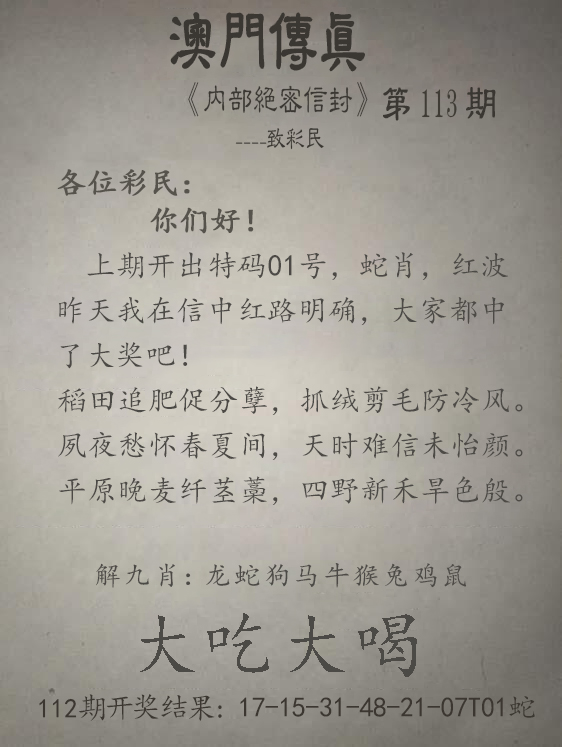 澳門傳真
《内部絕密信封》第113期
----致彩民
各位彩民：
你们好！
上期开出特码01号，蛇肖，红波
昨天我在信中红路明确，大家都中
了大奖吧！
稻田追肥促分孽，抓绒剪毛防冷风。
夙夜愁怀春夏间，天时难信未怡颜。
平原晚麦纤茎藁，四野新禾旱色殷。
解九肖：龙蛇狗马牛猴兔鸡鼠
大吃大喝
112期开奖结果：17-15-31-48-21-07T01蛇